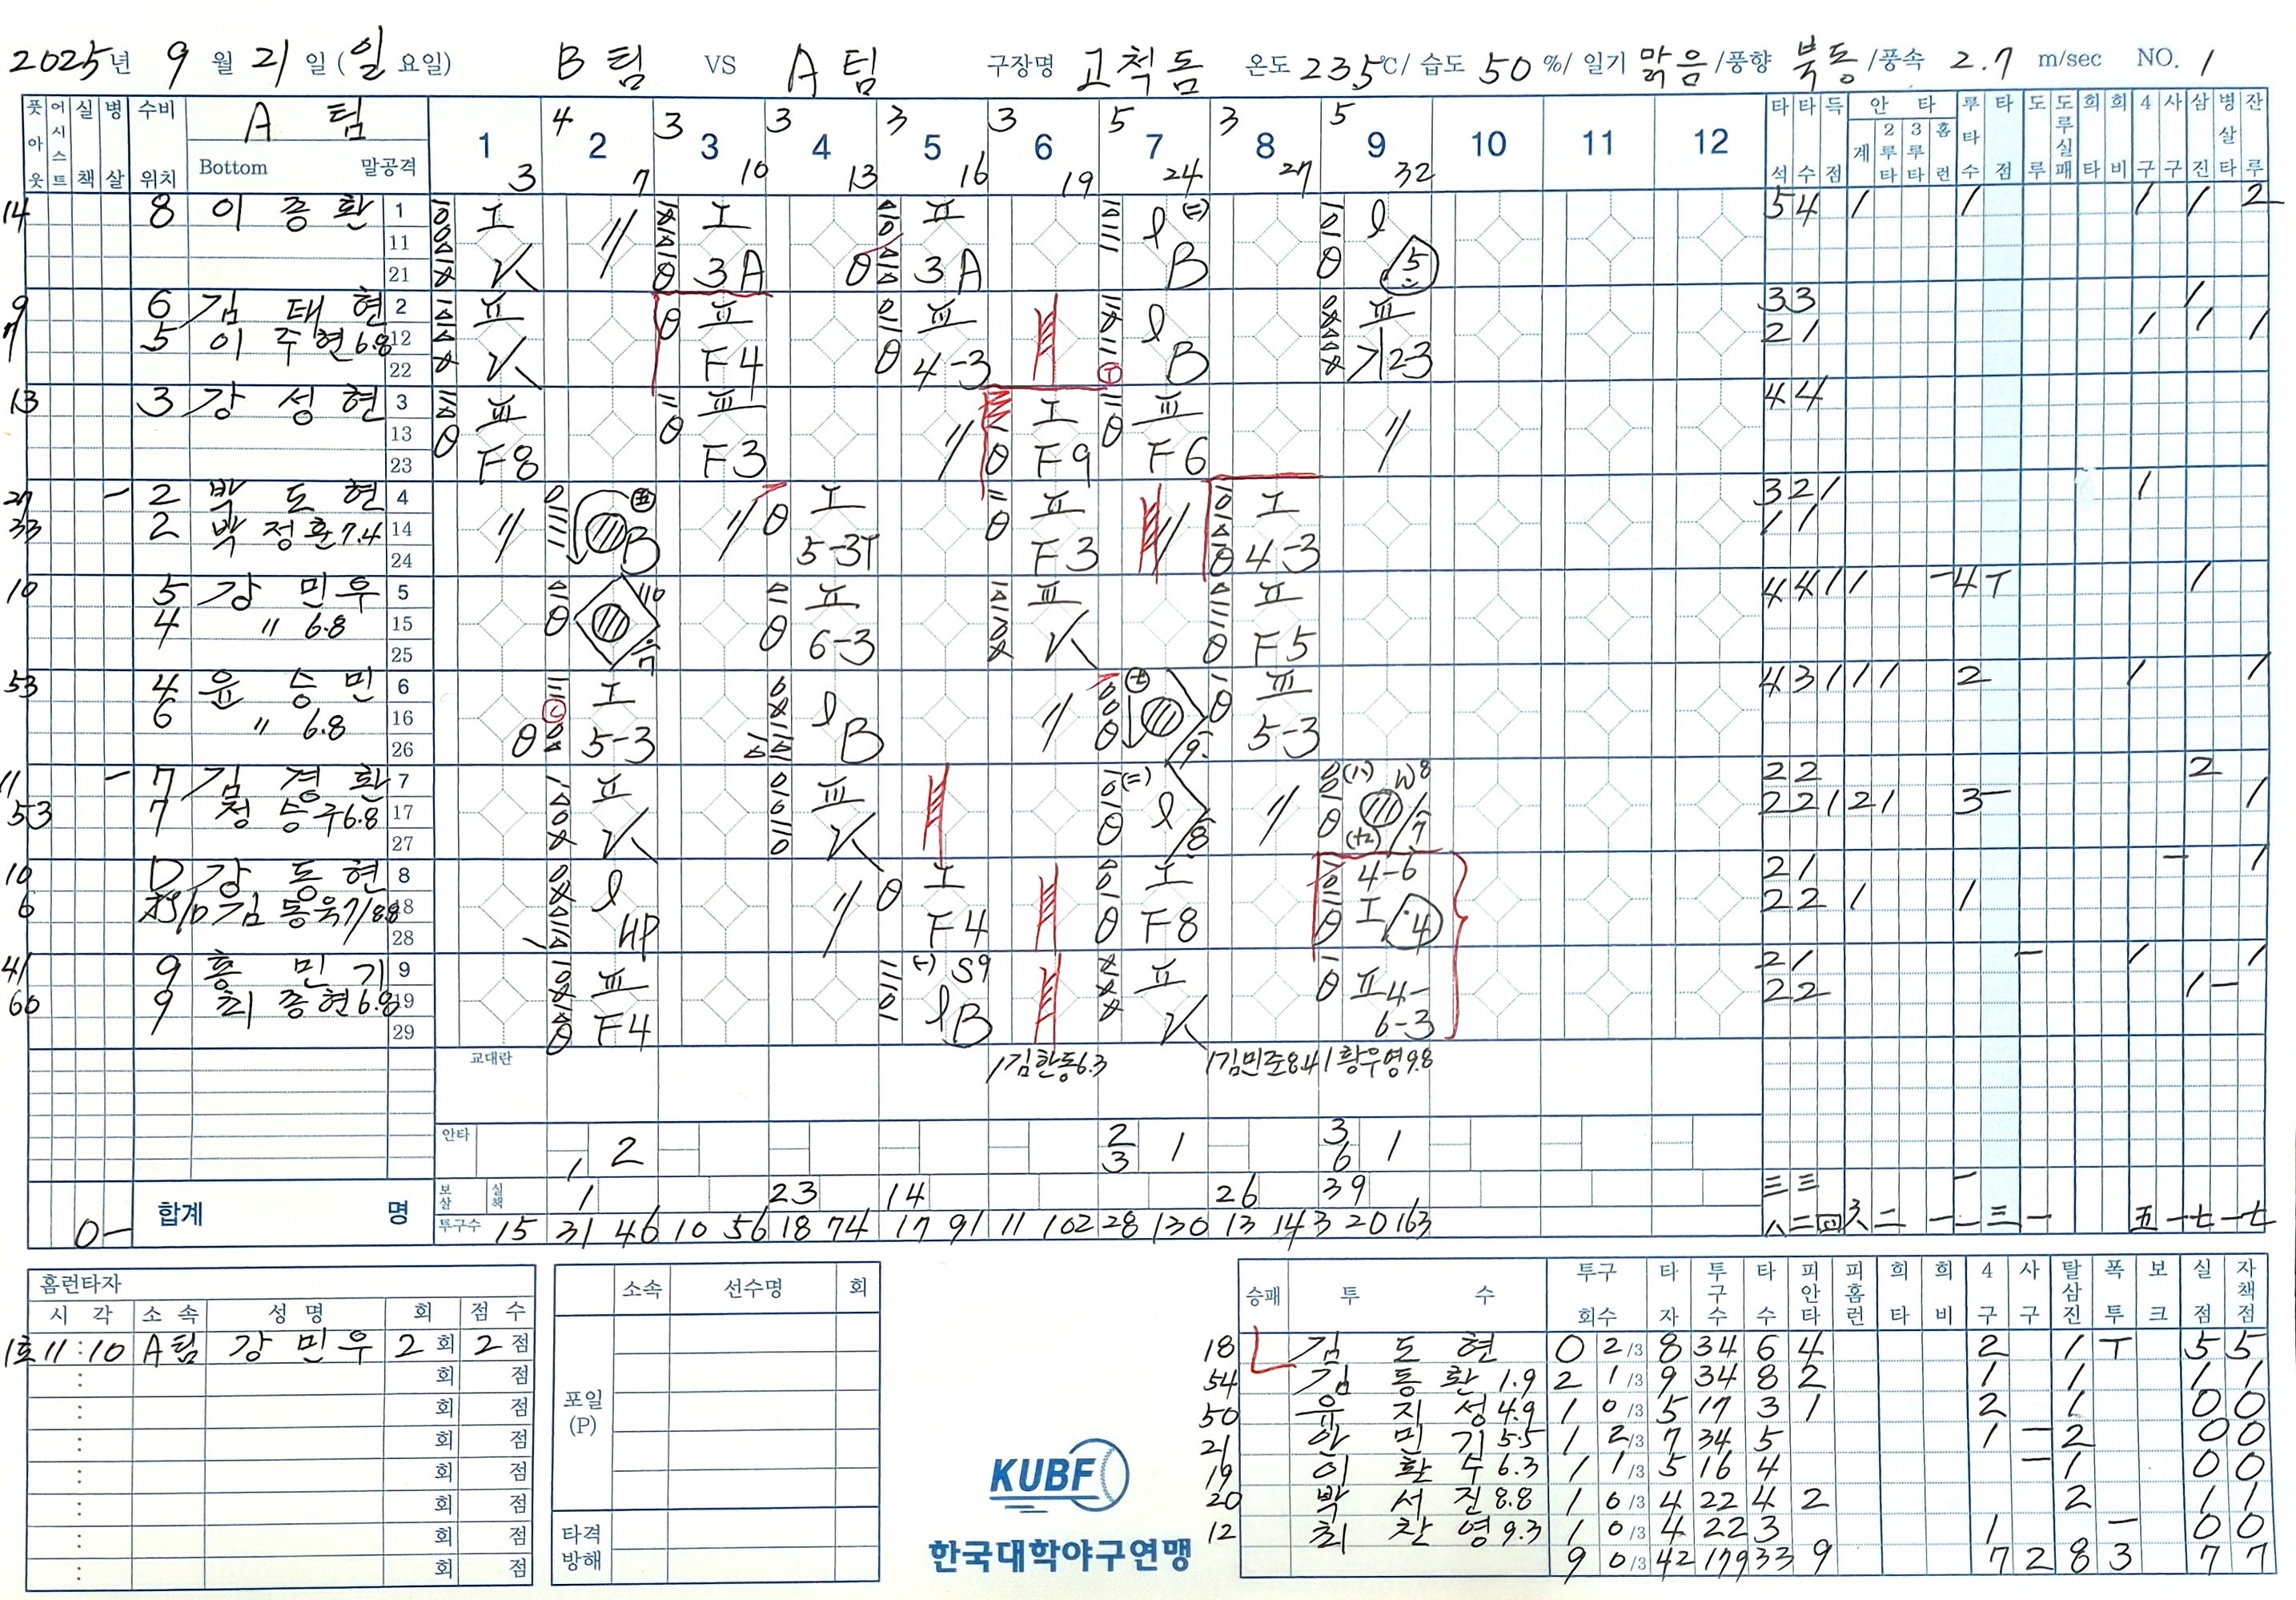 2025년 9월 21일 (일요일) B팀 VS A팀 구장명 고척돔 온도 23.5℃/ 습도 50 %/ 일기 맑음 /풍향 북동 /풍속 2.7 m/sec NO. 1
풋아웃 어시스트 실책 병살 수비위치 A 팀
Bottom 말공격
1 2 3 4 5 6 7 8 9 10 11 12
4 3 3 3 3 5 3 5
3 7 10 13 16 19 24 27 32
타석 타수 득점 안타 계 2루타 3루타 홈런 루타수 타점 도루 도루실패 희타 희비 4구 사구 삼진 병살타 잔루
14 8 이종환 1 11 21
I K // I 3A II 3A l B l 5
5 4 1 1 1 1 2
9 6 김태현 2
7 5 이주현 6.8 12 22
II K II F4 III 4-3 l B III 기2-3
3 3 1
2 1 1 1 1
13 3 강성현 3 13 23
III F8 III F3 // I F9 III F6 //
4 4
27 2 박도현 4
33 2 박정환 7.4 14 24
// B // I 5-3T II F3 // I 4-3
3 2 1 1
1 1
10 5 강민우 5
4 〃 6.8 15 25
110 II 6-3 III K II F5
4 4 1 1 4 1
53 4 윤승민 6
6 〃 6.8 16 26
I 5-3 l B // 9 III 5-3
4 3 1 1 1 2 1 1
11 7 김경환 7
53 7 정승주 6.8 17 27
II K III K l 8 // W8 7
2 2 2
2 2 1 2 1 3 1
10 D 강동현 8
6 김동욱 7/8.8 18 28
l HP // I F4 I F8 4-6 I 4
2 1 1
2 2 1 1
41 9 홍민기 9
60 9 최종현 6.8 19 29
III F4 S9 l B II K II 4-6-3
2 1 1 1
2 2 1
교대란 1김한동6.3 1김민준8.4 1황우영9.8
안타 1 2 2 3 1 3 6 1
보살 실책 1 23 14 26 39
합계 명
투구수 15 31 46 10 56 18 74 17 91 11 102 28 130 13 143 20 163
홈런타자
시각 소속 성명 회 점수
1호 11:10 A팀 강민우 2회 2점
: 회 점
: 회 점
: 회 점
: 회 점
: 회 점
: 회 점
: 회 점
: 회 점
소속 선수명 회
포일 (P)
타격방해
KUBF
한국대학야구연맹
승패 투수 투구회수 타자 투구수 타수 피안타 피홈런 희타 희비 4구 사구 탈삼진 폭투 보크 실점 자책점
18 L 김도현 0 2/3 8 34 6 4 2 1 T 5 5
54 김동환 1.9 2 1/3 9 34 8 2 1 1 1 1
50 윤지성 4.9 1 0/3 5 17 3 1 2 1 0 0
21 안민기 5.5 1 2/3 7 34 5 1 - 2 0 0
19 이환수 6.3 1 1/3 5 16 4 - 1 0 0
20 박서진 8.8 1 0/3 4 22 4 2 2 1 1
12 최찬영 9.3 1 0/3 4 22 3 1 - 0 0
9 0/3 42 179 33 9 7 2 8 3 7 7